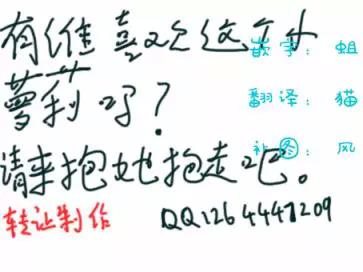 有谁喜欢这个小
萝莉吗？
请来抱她抱走吧。
转让制作 QQ1264447209
嵌字：蛆
翻译：猫
补图：风